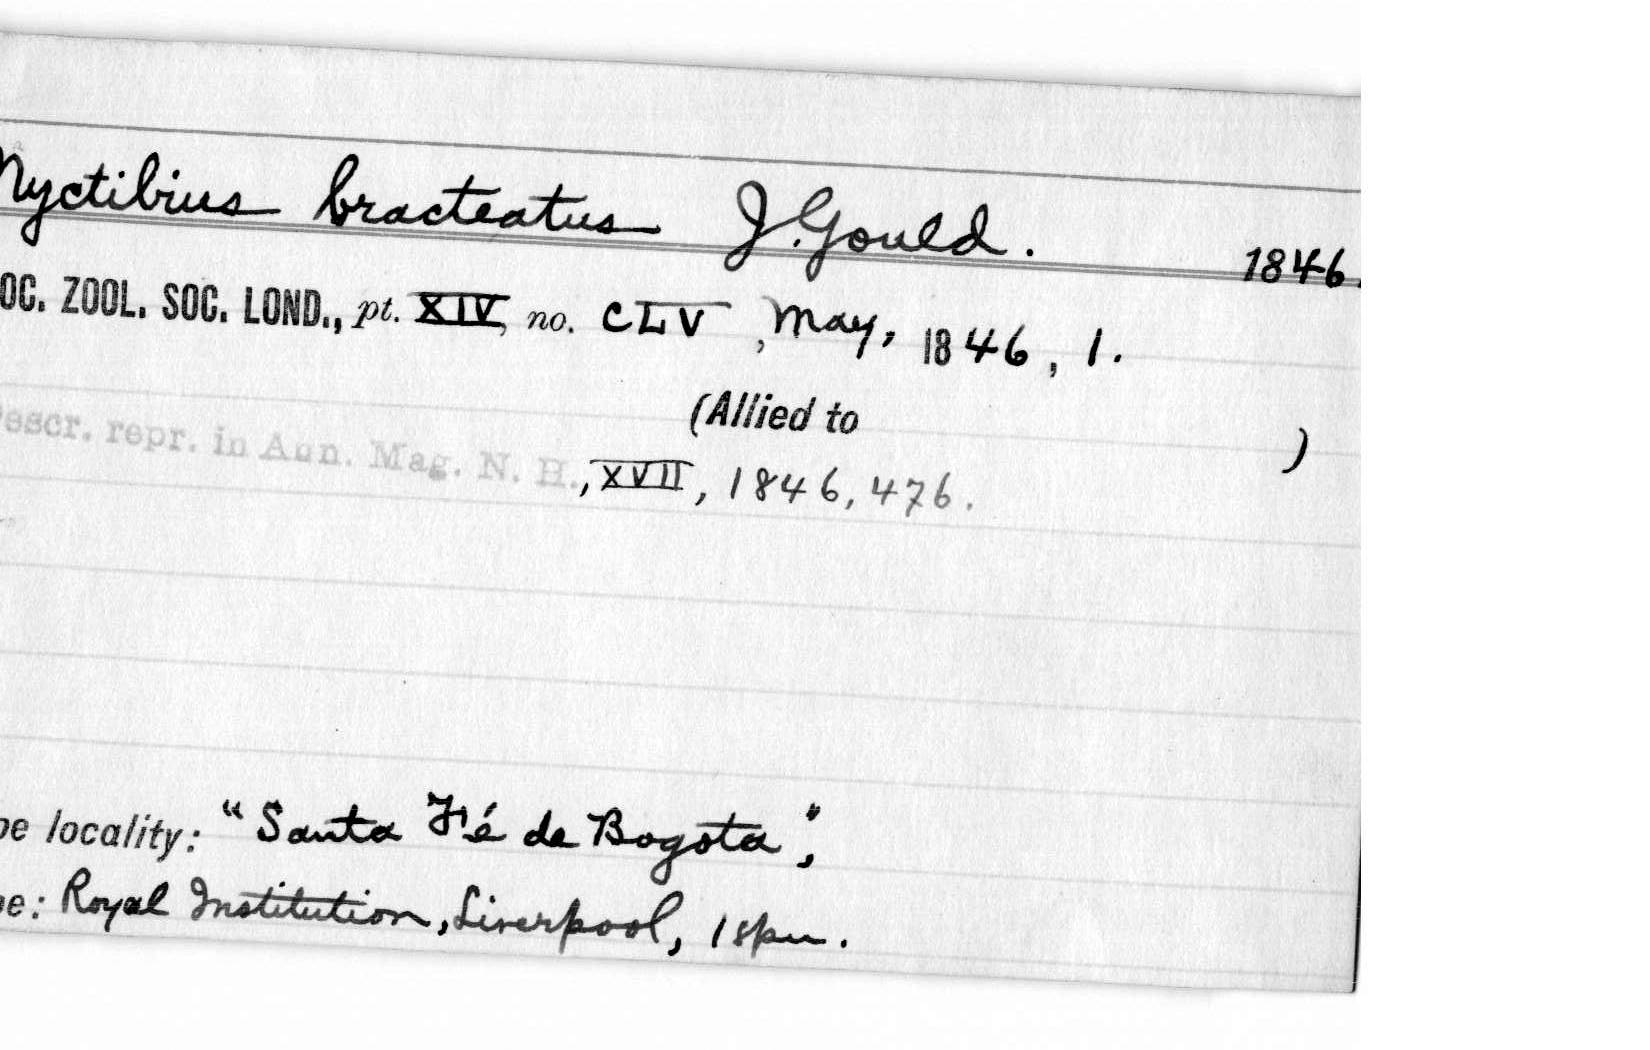 Nyctibius bracteatus J. Gould. 1846.
OC. ZOOL. SOC. LOND., pt. XIV, no. CLV, May, 1846, 1.
(Allied to )
Descr. repr. in Ann. Mag. N. H., XVII, 1846, 476.
pe locality: "Santa Fé de Bogota";
pe: Royal Institution, Liverpool, 1 spm.